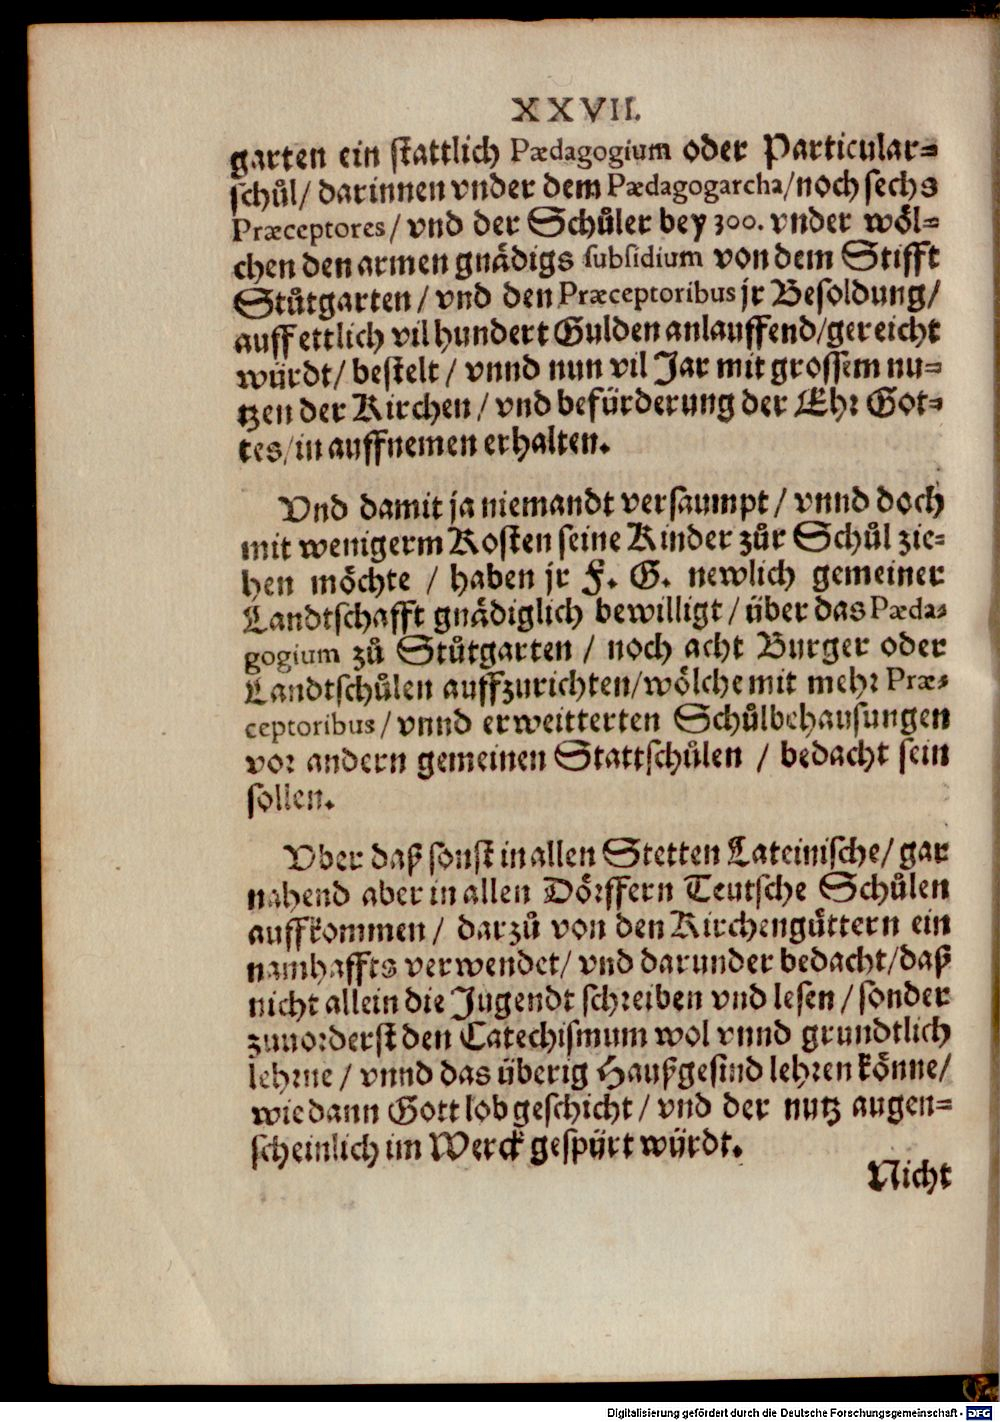 XXVII.
garten ein stattlich Pædagogium oder Particular=
schůl/ darinnen vnder dem Pædagogarcha/noch sechs
Præceptores/ vnd der Schůler bey 300. vnder wöl=
chen den armen gnädigs subsidium von dem Stifft
Stůtgarten/ vnd den Præceptoribus jr Besoldung/
auff ettlich vil hundert Gulden anlauffend/gereicht
würdt/ bestelt/ vnnd nun vil Jar mit grossem nu=
tzen der Kirchen/ vnd befürderung der Ehr Got=
tes/in auffnemen erhalten.
Vnd damit ja niemandt versaumpt/ vnnd doch
mit wenigerm Kosten seine Kinder zůr Schůl zie=
hen möchte / haben jr F. G. newlich gemeiner
Landtschafft gnädiglich bewilligt/ über das Pæda=
gogium zů Stůtgarten / noch acht Burger oder
Landtschůlen auffzurichten/wölche mit mehr Præ=
ceptoribus/ vnnd erweitterten Schůlbehausungen
vor andern gemeinen Stattschůlen / bedacht sein
sollen.
Vber daß sonst in allen Stetten Lateinische/ gar
nahend aber in allen Dörffern Teutsche Schůlen
auffkommen/ darzů von den Kirchengůttern ein
namhaffts verwendet/ vnd darunder bedacht/daß
nicht allein die Jugendt schreiben vnd lesen/ sonder
zuuorderst den Catechismum wol vnnd grundtlich
lehrne/ vnnd das überig Haußgesind lehren könne/
wie dann Gott lob geschicht/ vnd der nutz augen=
scheinlich im Werck gespürt würdt.
Nicht
Digitalisierung gefördert durch die Deutsche Forschungsgemeinschaft - DFG